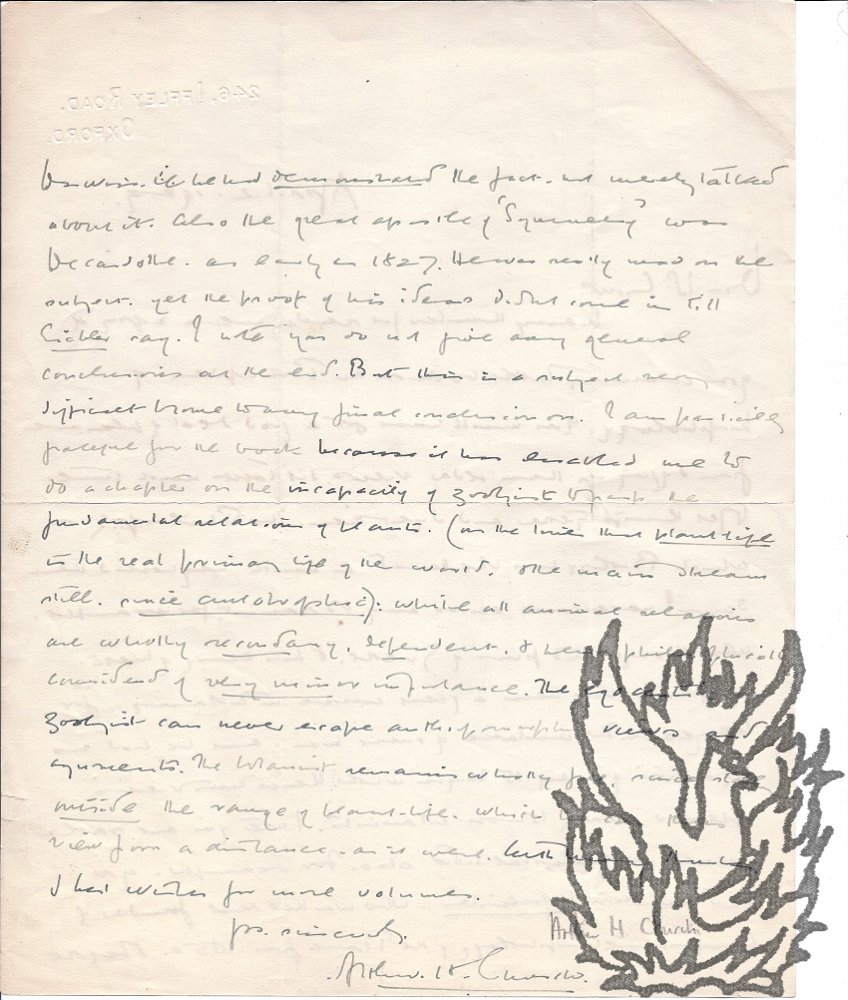 246, IFFLEY ROAD.
OXFORD.
Darwin. if he had demonstrated the fact. not merely talked
about it. Also the great apostle of "Symmetry" was
Decandolle. as early as 1827. He was really mad on the
subject. yet the proof of his ideas didnt come in till
Eichler say. I note you do not give any general
conclusions at the end. But this is a subject very
difficult to come to any final conclusion on. I am particularly
grateful for the book because it has enabled me to
do a chapter on the incapacity of Zoologist to grasp the
fundamental relations of plants. (on the lines that plant-life
is the real primary life of the world. the main stream
still. since autotrophic): while all animal relations
are wholly secondary, dependent. & hence philosophically
considered of very minor importance. The
Zoologist can never escape anthropomorphic views and
arguments. The botanist remains wholly free, since
outside the range of plant-life. which he can
view from a distance. as it were. With many thanks
& best wishes for more volumes.
yrs. sincerely.
Arthur. H. Church.
Arthur H Church